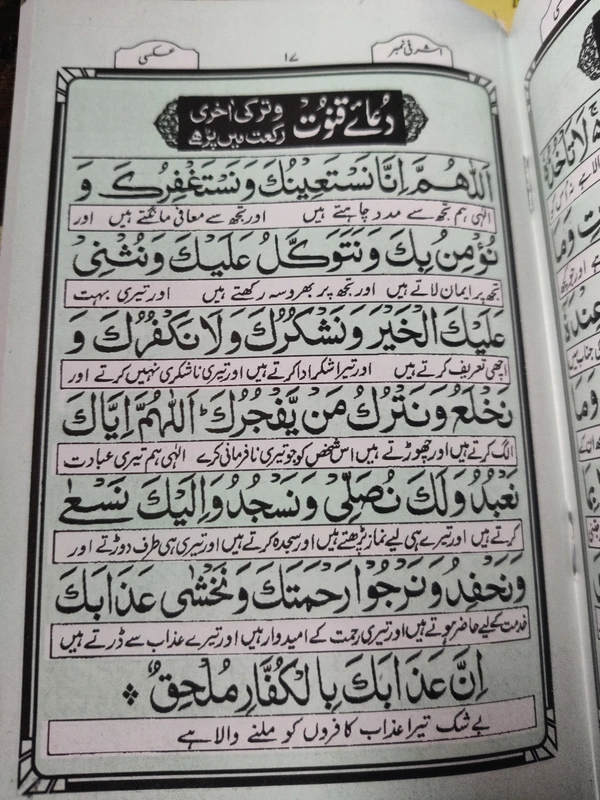 اشرفی نمبر
۱۷
عکسی
دُعائے قنوت وتر کی آخری
رکعت میں پڑھے
اَللّٰهُمَّ اِنَّا نَسْتَعِيْنُكَ وَنَسْتَغْفِرُكَ وَ
الٰہی ہم تجھ سے مدد چاہتے ہیں اور تجھ سے معافی مانگتے ہیں اور
نُؤْمِنُ بِكَ وَنَتَوَكَّلُ عَلَيْكَ وَنُثْنِیْ
تجھ پر ایمان لاتے ہیں اور تجھ پر بھروسہ رکھتے ہیں اور تیری بہت
عَلَيْكَ الْخَيْرَ وَنَشْكُرُكَ وَلَا نَكْفُرُكَ وَ
اچھی تعریف کرتے ہیں اور تیرا شکر ادا کرتے ہیں اور تیری ناشکری نہیں کرتے اور
نَخْلَعُ وَنَتْرُكُ مَنْ يَّفْجُرُكَ ؕ اَللّٰهُمَّ اِيَّاكَ
الگ کرتے ہیں اور چھوڑتے ہیں اس شخص کو جو تیری نافرمانی کرے الٰہی ہم تیری عبادت
نَعْبُدُ وَلَكَ نُصَلِّیْ وَنَسْجُدُ وَاِلَيْكَ نَسْعٰی
کرتے ہیں اور تیرے ہی لیے نماز پڑھتے ہیں اور سجدہ کرتے ہیں اور تیری ہی طرف دوڑتے اور
وَنَحْفِدُ وَنَرْجُوْا رَحْمَتَكَ وَنَخْشٰی عَذَابَكَ
خدمت کیلئے حاضر ہوتے ہیں اور تیری رحمت کے امیدوار ہیں اور تیرے عذاب سے ڈرتے ہیں
اِنَّ عَذَابَكَ بِالْكُفَّارِ مُلْحِقٌ
بے شک تیرا عذاب کافروں کو ملنے والا ہے